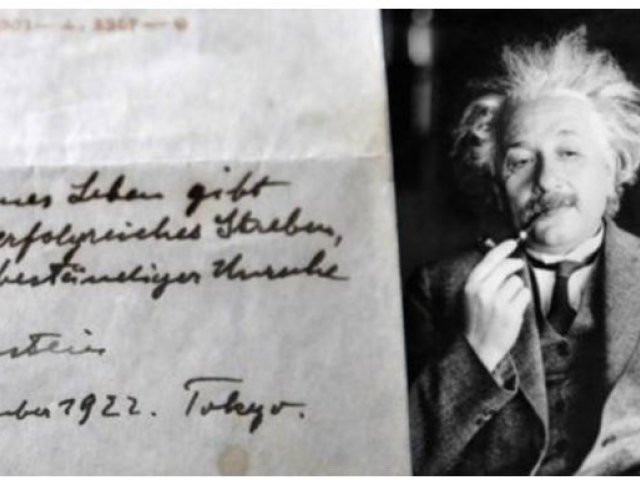 nes Leben gibt
erfolgreiches Streben,
beständiger Unruhe
nstein
mber 1922. Tokyo.